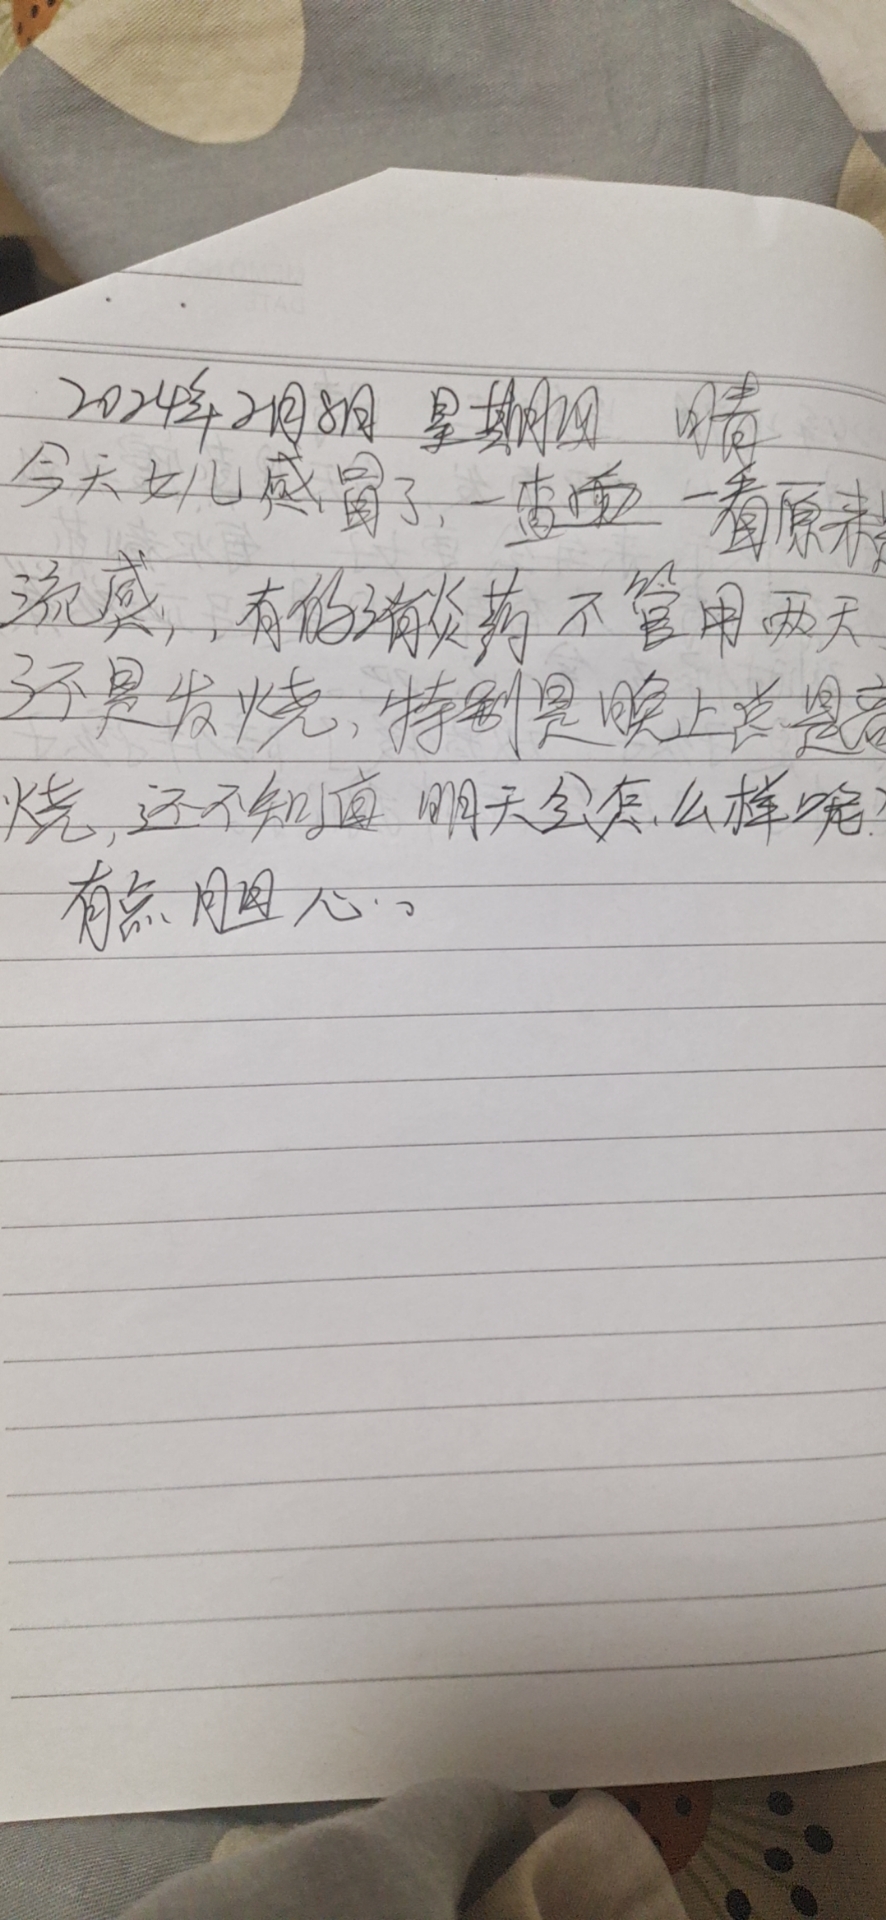 2024年2月8日 星期四 晴
今天女儿感冒了，一查 一看原来
流感，，有的消炎药不管用两天
了还是发烧，特别是晚上总是高
烧，还不知道明天会怎么样呢？
有点担心..。